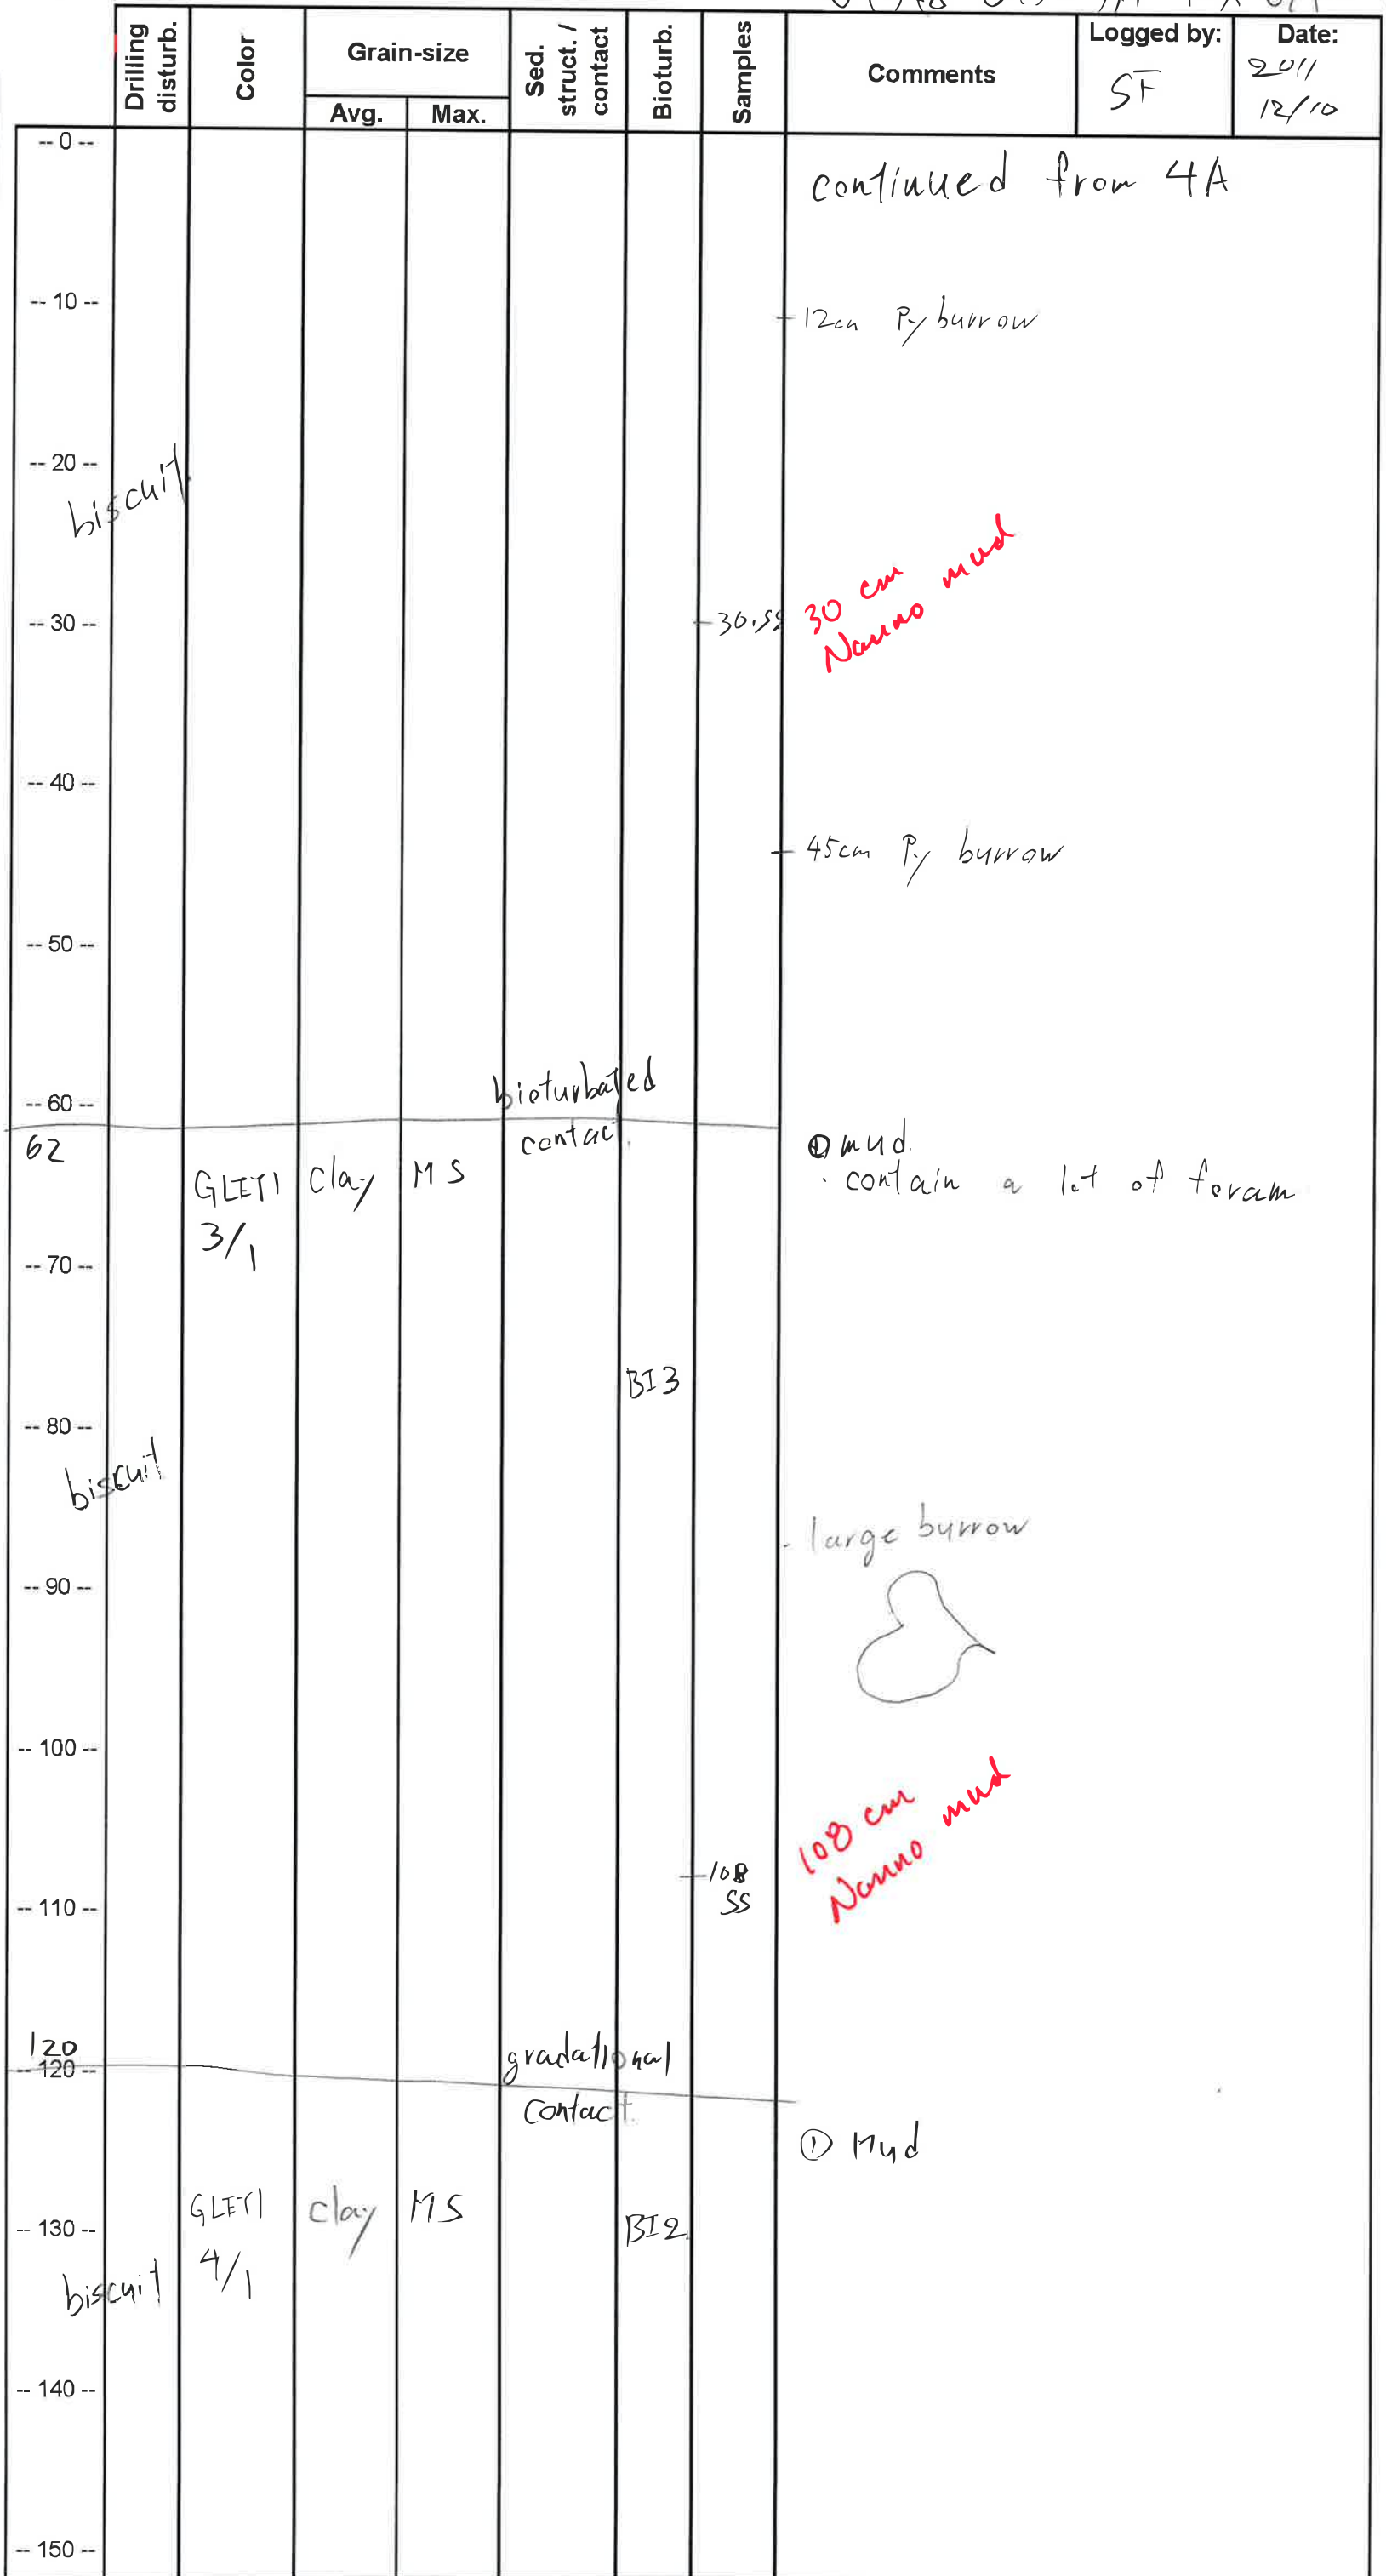 Drilling disturb.
Color
Grain-size
Avg.
Max.
Sed. struct. / contact
Bioturb.
Samples
Comments
Logged by:
SF
Date:
2011
12/10
-- 0 --
continued from 4A
-- 10 --
12cm Py burrow
-- 20 --
biscuit
30 cm
Nanno mud
-- 30 --
30.SS
-- 40 --
45cm Py burrow
-- 50 --
bioturbated
-- 60 --
62
contact.
① mud.
GLEY1
3/1
clay
MS
· contain a lot of foram
-- 70 --
BI3
-- 80 --
biscuit
- large burrow
-- 90 --
-- 100 --
108 cm
Nanno mud
108
SS
-- 110 --
120
-- 120 --
gradational
contact.
① Mud
GLEY1
4/1
clay
MS
BI2.
-- 130 --
biscuit
-- 140 --
-- 150 --